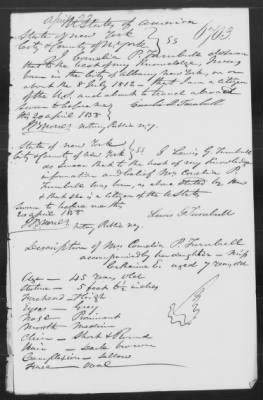 States of America
State of New York
City & County of New York } SS
I Cornelia P. Turnbull do swear
that to the best of my knowledge, I was
born in the City of Albany New York, on or
about the 8 July 1812 - that I am a citizen
of the U.S. and about to travel abroad
Sworn to before me
this 20 april 1858 Cornelia P. Turnbull
Notary Public N.Y.
State of New York
City & County of New York } SS I Lewis G. Turnbull
do swear that to the best of my knowledge
information and belief Mrs Cornelia P.
Turnbull was born, as above stated by her
& that she is a citizen of the U. States
Sworn to before me this
20 april 1858 Lewis G. Turnbull
Notary Public N.Y.
Description of Mrs Cornelia P. Turnbull
accompanied by her daughter - Miss
Catharine E. aged 7 years old
Age - 45 years old
Stature - 5 feet 6 1/2 inches
Forehead - High
Eyes - Grey
Nose - Prominent
Mouth - Medium
Chin - Short & Round
Hair - Dark brown
Complexion - Sallow
Face - Oval